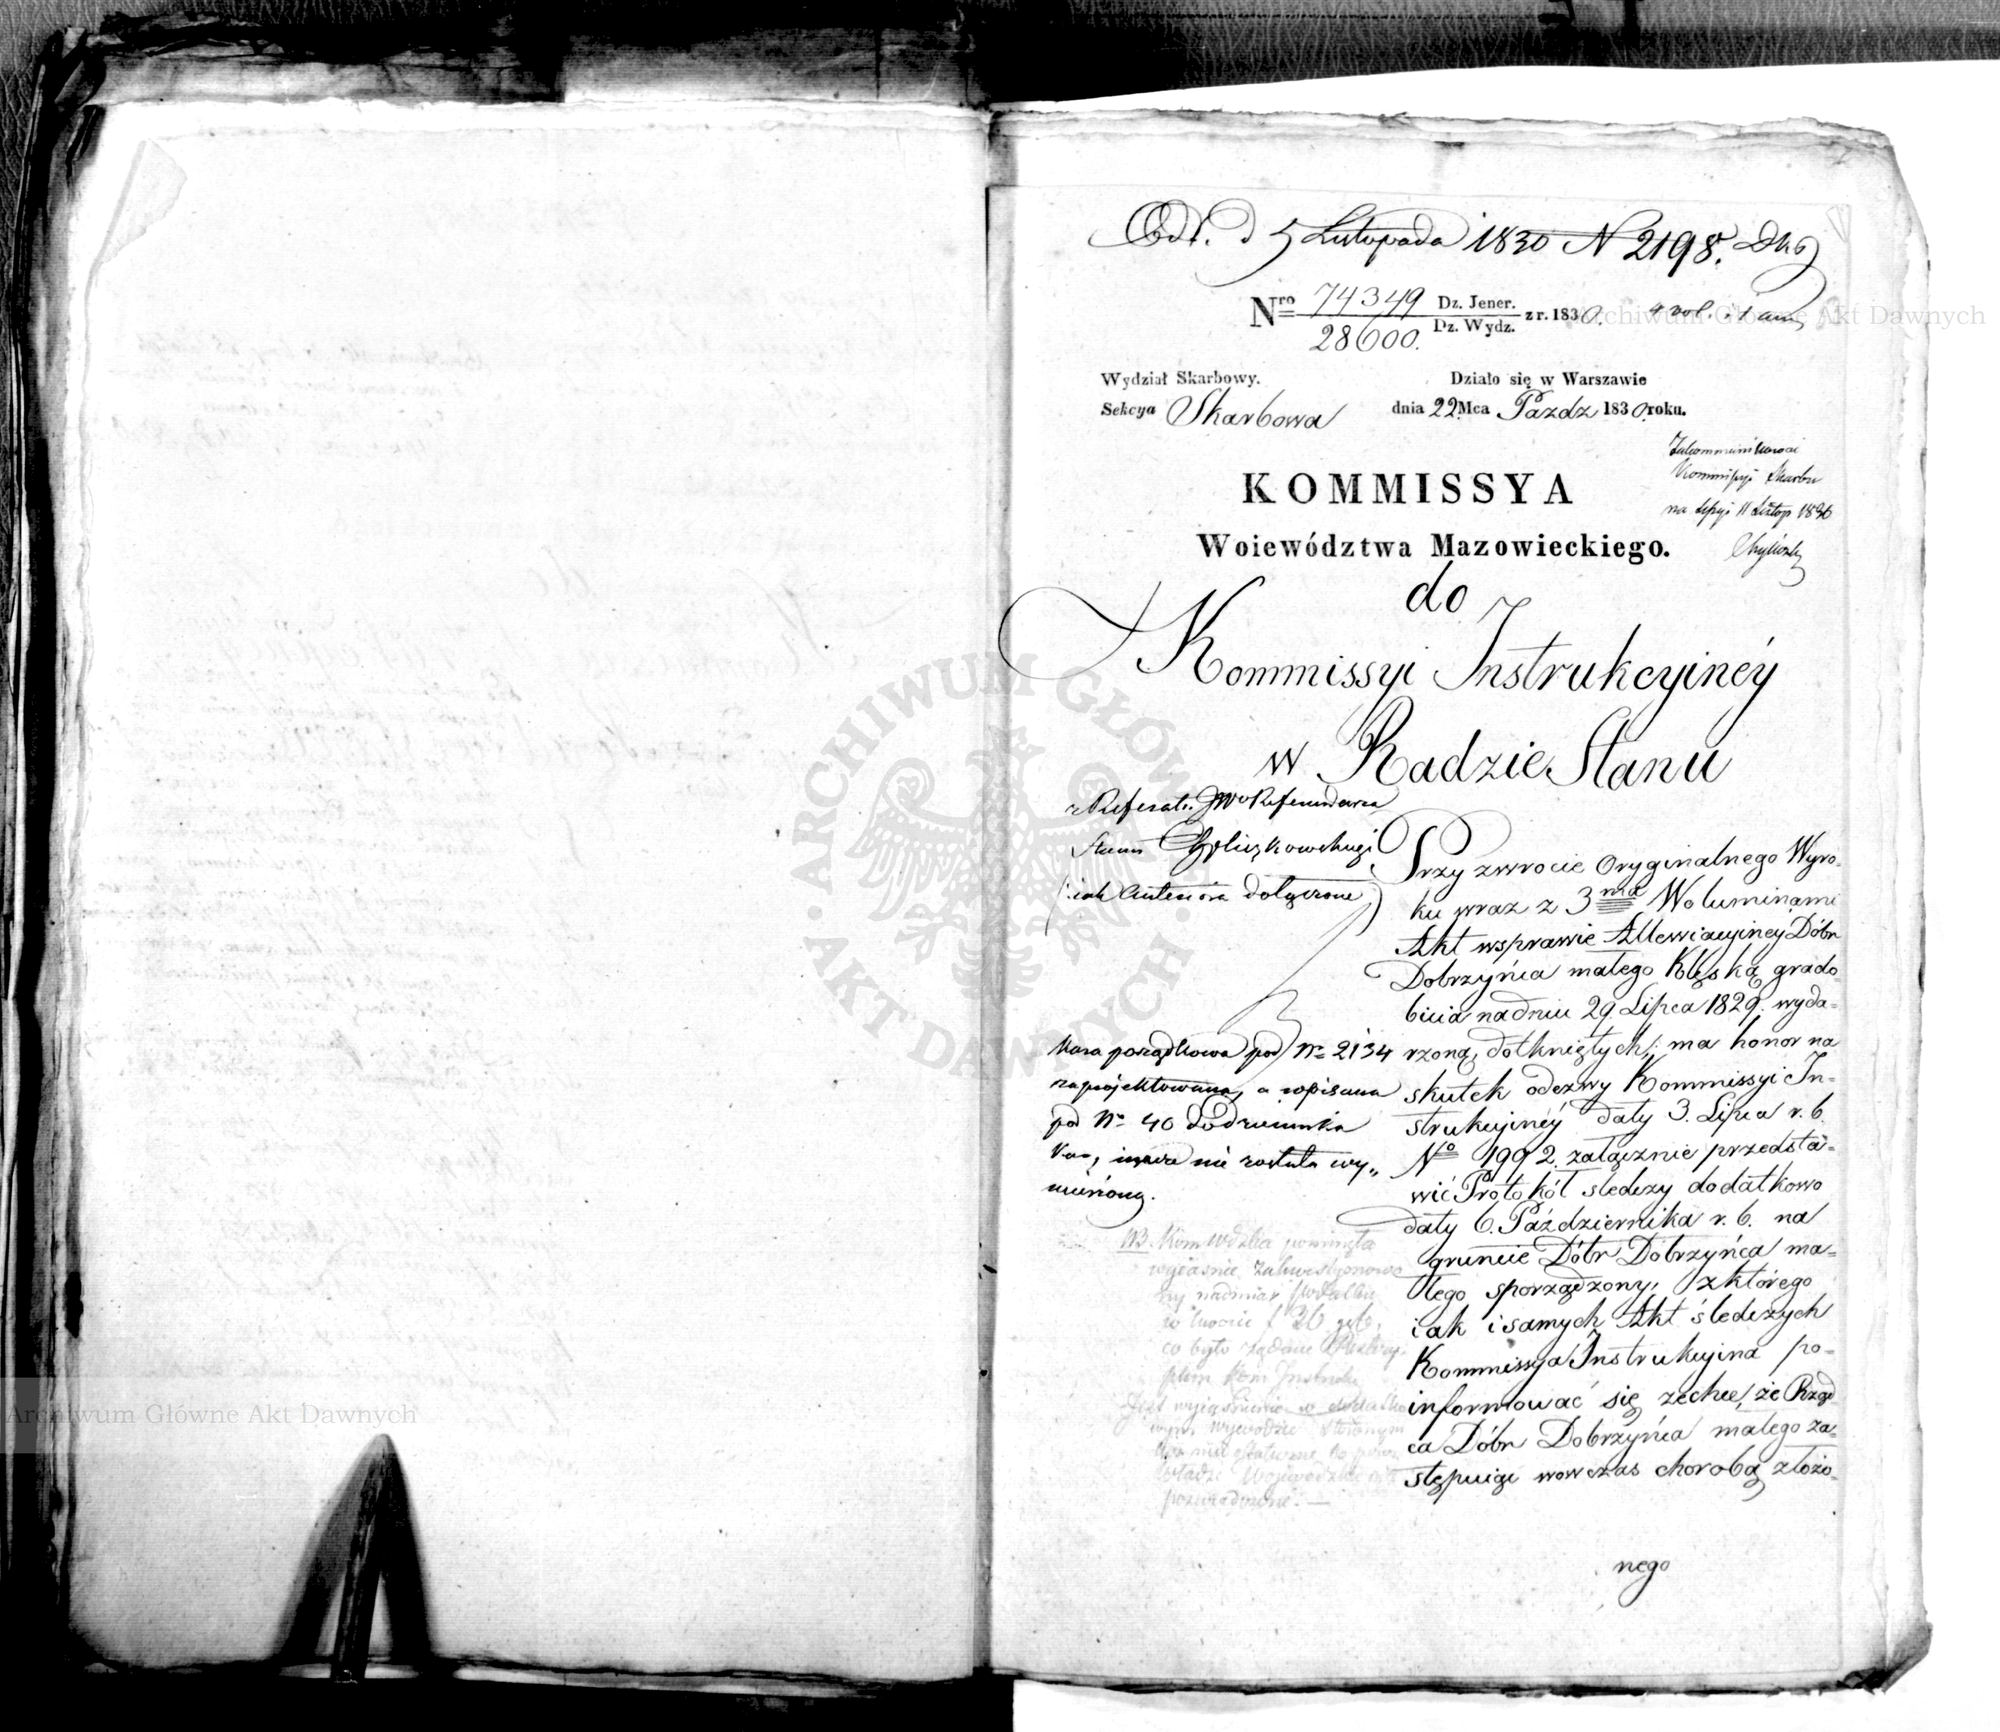 Odt. d 5 Listopada 1830 N 2198. Dks
Nro 74349 Dz. Jener.
28600. Dz. Wydz. z r. 1830. 4 vol. i 1 
Wydział Skarbowy.
Sekcya Skarbowa
Działo się w Warszawie
dnia 22 Mca Pazdz 1830. roku.
Zakommunikować
Kommissyi Skarbu
na Sessyi 11 Listop 1830
KOMMISSYA
Woiewództwa Mazowieckiego.
do
Kommissyi Instrukcyinéy
w Radzie Stanu
Referat. JWo Referendarza
Stanu
dołączone
Przy zwrocie Oryginalnego Wyro-
ku wraz z 3ma Woluminami
Akt wsprawie Allewiacyiney Dóbr
Dobrzyńca małego Klęską grado
bicia nadniu 29 Lipca 1829. wyda-
rzoną, dotkniętych; ma honor na
skutek odezwy Kommissyi In-
strukcyinéy daty 3. Lipca r. b.
No 1992. załącznie przedsta-
wić Protokół śledczy dodatkowo
daty 6. Października r. b. na
gruncie Dóbr Dobrzyńca ma-
łego sporządzony, z którego
iak i samych Akt śledczych
Kommissya Instrukcyina po-
informować się zechce, że Rząd
ca Dóbr Dobrzyńca małego za-
stępuiąc wowczas chorobą złożo-
nego
Kara porządkowa pod No 2134
zaprojektowana, a wpisana
pod No 40 Dodziennika
Kar, ieszcze nie została wy-
mierzoną.
NB. Kom Wdzka pominęła
wyjaśnić
nadmiar podatku
w kwocie f 36 g 6,
co było żądane
Kom Instruk
Jest wyjaśnienie w dodatko
wym wywodzie
Archiwum Główne Akt Dawnych
ARCHIWUM GŁÓWNE AKT DAWNYCH
Archiwum Główne Akt Dawnych